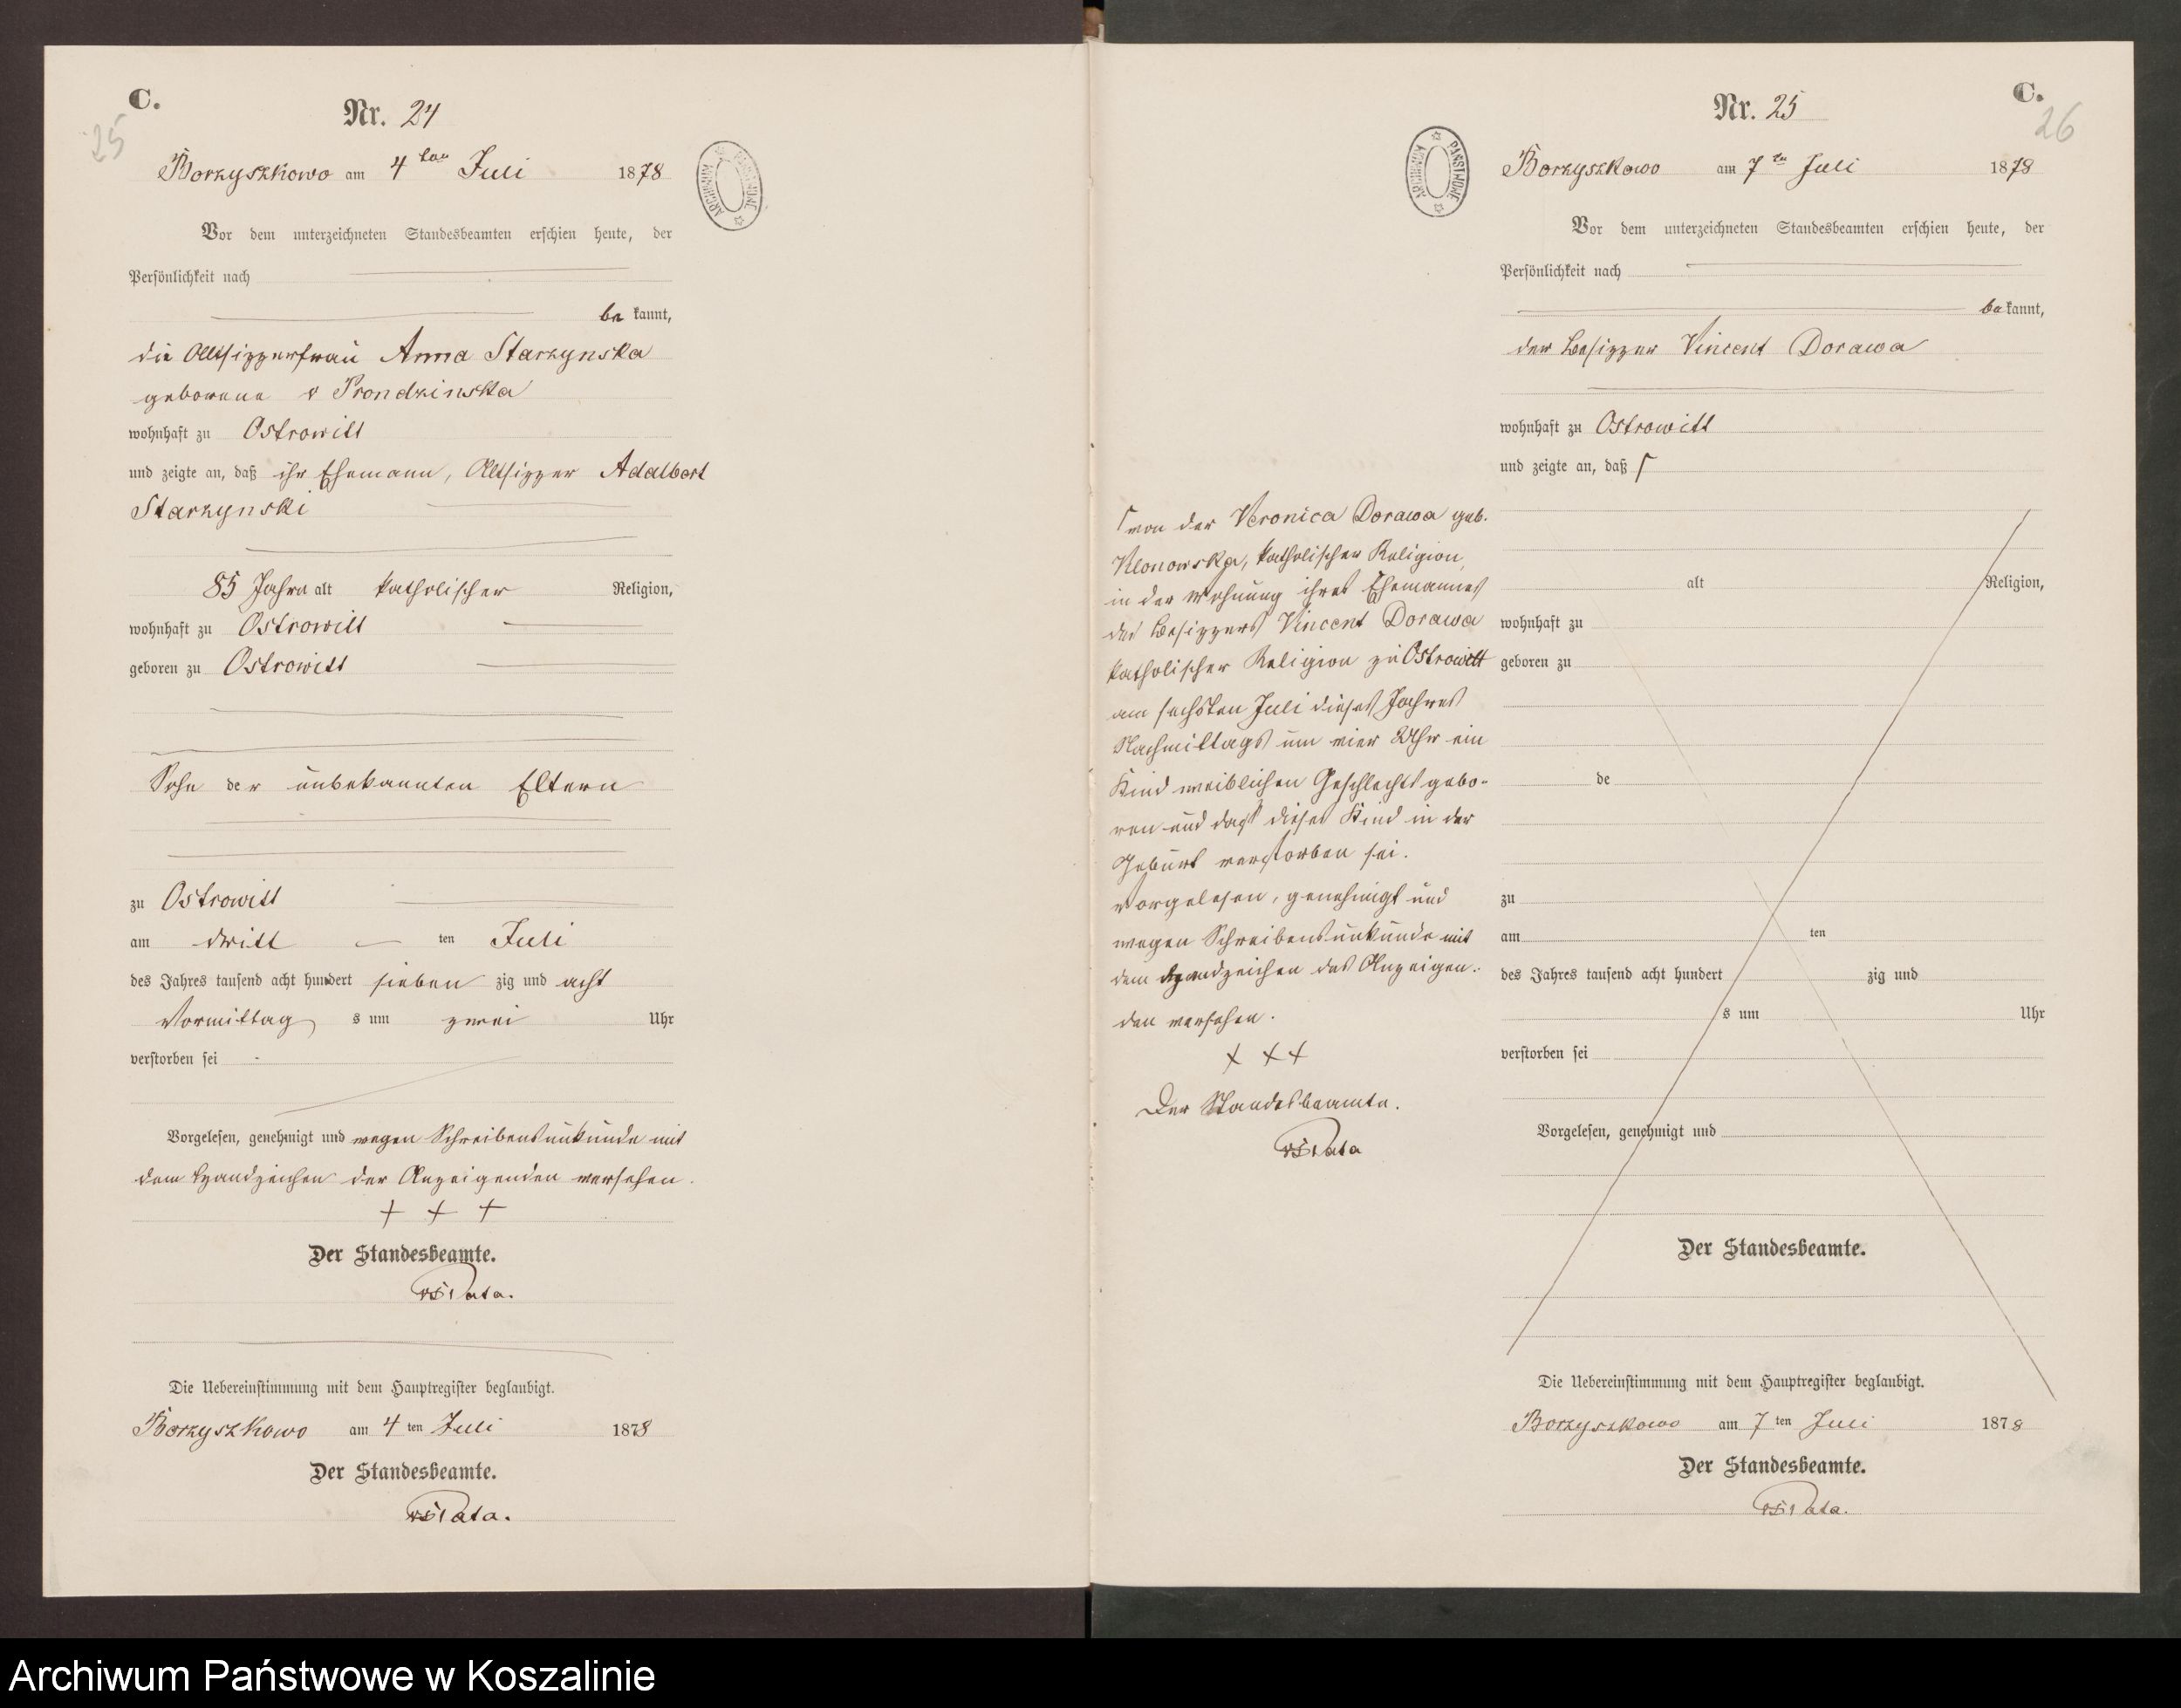 C.
25
Nr. 24
Borzyszkowo am 4 ten Juli 1878
ARCHIWUM PAŃSTWOWE
Vor dem unterzeichneten Standesbeamten erschien heute, der
Persönlichkeit nach
bekannt,
die Altsitzerfrau Anna Starzynska
geborene v Prondzinska
wohnhaft zu Ostrowitt
und zeigte an, daß ihr Ehemann, Altsitzer Adalbert
Starzynski
85 Jahre alt katholischer Religion,
wohnhaft zu Ostrowitt
geboren zu Ostrowitt
Sohn der unbekannten Eltern
zu Ostrowitt
am dritt ten Juli
des Jahres tausend acht hundert sieben zig und acht
Vormittag s um zwei Uhr
verstorben sei
Vorgelesen, genehmigt und wegen Schreibensunkunde mit
dem Handzeichen der Anzeigenden versehen.
+ + +
Der Standesbeamte.
Die Uebereinstimmung mit dem Hauptregister beglaubigt.
Borzyszkowo am 4 ten Juli 1878
Der Standesbeamte.
C.
26
Nr. 25
Borzyszkowo am 7 ten Juli 1878
ARCHIWUM PAŃSTWOWE
Vor dem unterzeichneten Standesbeamten erschien heute, der
Persönlichkeit nach
bekannt,
der Besitzer Vincent Dorawa
wohnhaft zu Ostrowitt
und zeigte an, daß
von der Veronica Dorawa geb.
Klonowska, katholischer Religion,
in der Wohnung ihres Ehemannes
des Besitzers Vincent Dorawa
katholischer Religion zu Ostrowitt
am sechsten Juli dieses Jahres
Nachmittags um vier Uhr ein
Kind weiblichen Geschlechts gebo-
ren und daß dieses Kind in der
Geburt verstorben sei.
Vorgelesen, genehmigt und
wegen Schreibensunkunde mit
dem Handzeichen des Anzeigen-
den versehen.
+ + +
Der Standesbeamte.
alt Religion,
wohnhaft zu
geboren zu
de
zu
am ten
des Jahres tausend acht hundert zig und
s um Uhr
verstorben sei
Vorgelesen, genehmigt und
Der Standesbeamte.
Die Uebereinstimmung mit dem Hauptregister beglaubigt.
Borzyszkowo am 7 ten Juli 1878
Der Standesbeamte.
Archiwum Państwowe w Koszalinie